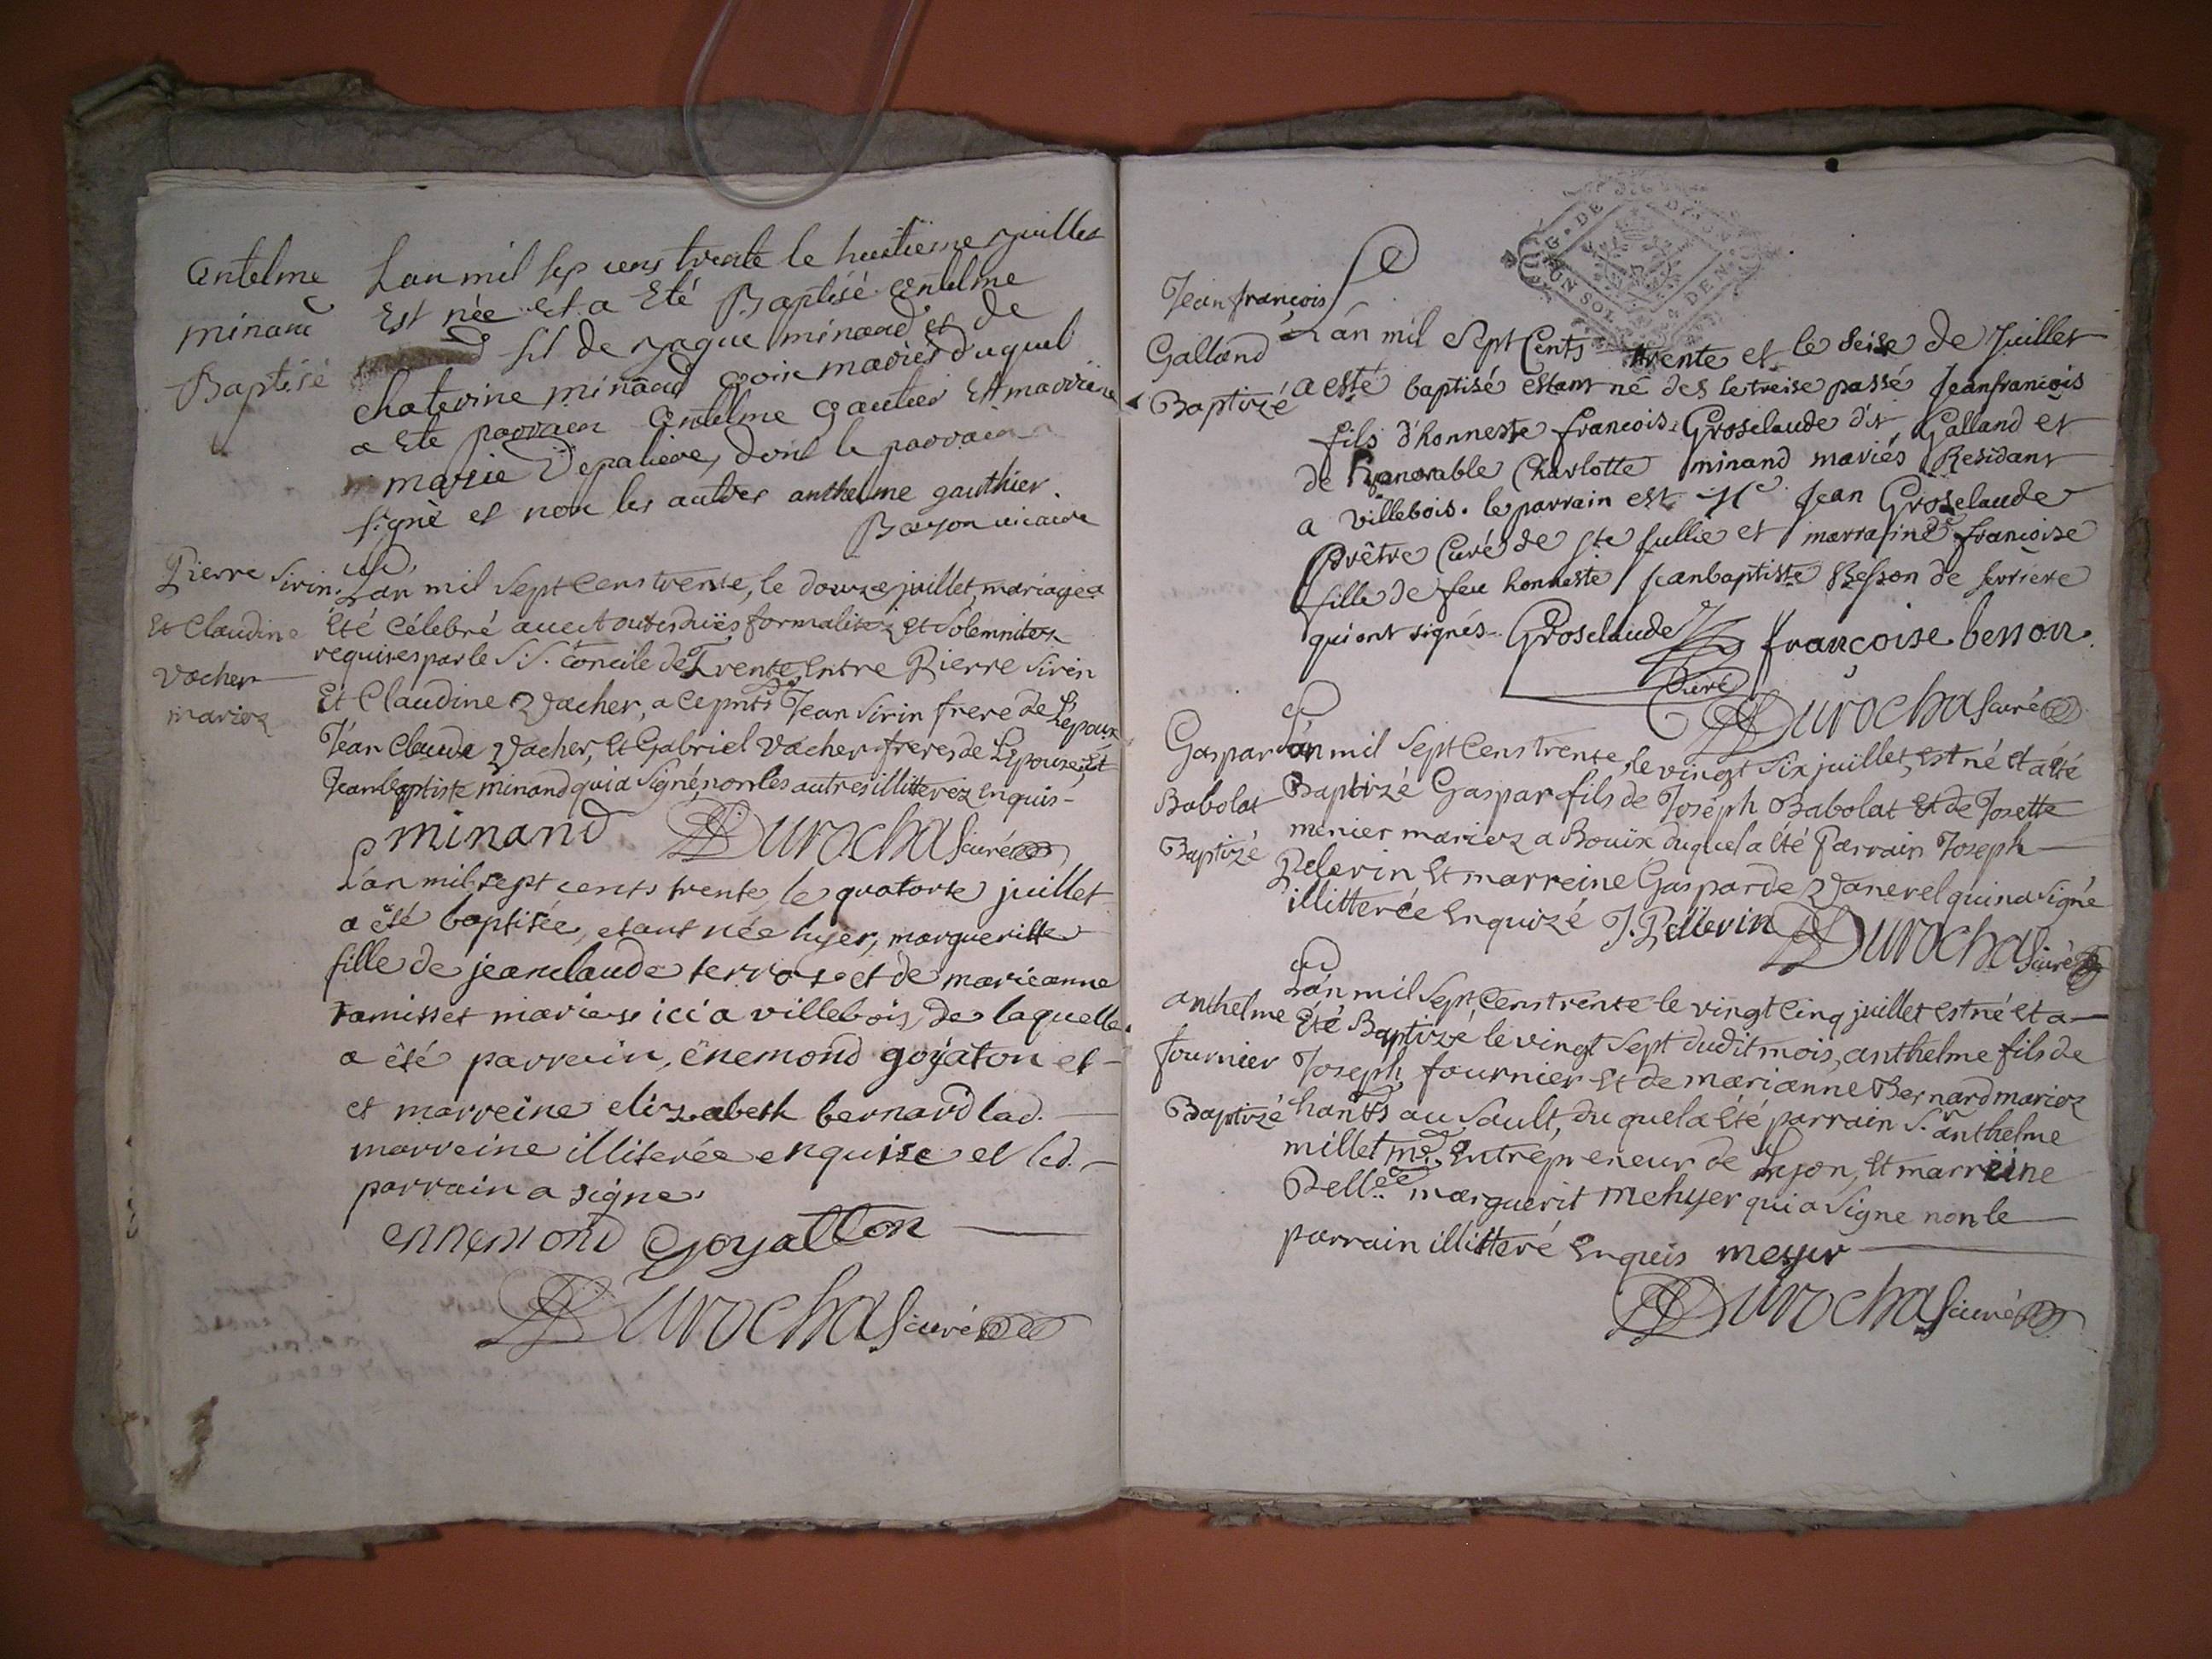 antelme
minand
Baptisé
Lan mil sep cens trente le huitieme juillet
Est née Et a Eté Baptisé antelme
fil de jaque minand et de
chaterine minand mariés duquel
a Ete parrain antelme gautier Et marraine
marie Depaliere, dont le parrain
signé et non les autres anthelme gauthier.
Bayon vicaire
Pierre Sirin
Et Claudine
Vacher
mariez
L'an mil Sept Cens trente, le douze juillet, mariage a
Eté Célébré avec toutes duës formalitez Et Solemnitez
requises par le S.S. Concile de Trente, Entre Pierre Sirin
Et Claudine Vacher, a ce pnts Jean Sirin frere de L'epoux
Jéan Claude Vacher, Et Gabriel Vacher freres de L'Epouse, Et
Jeanbaptiste minand qui a Signé, non les autres illitterez Enquis-
minand Durochas curé
L'an mil sept cents trente, le quatorse juillet
a été baptisée, etant née hyer, margueritte
fille de jeanclaude terras et de marieanne
ramisset maries ici a villebois, de laquelle
a été parrein, ënemond goyaton et-
et marreine elizabeth bernard lad.
marreine illiterée enquise et led.-
parrain a signe
ennemond Goyatton
Durochas curé
Jean françois
Galland
Baptizé
L'an mil Sept Cents trente et le Seise de Juillet
a esté baptisé estant né des le treise passé Jeanfrancois
fils d'honneste francois Groselaude dit Galland et
de honorable Charlotte minand mariés Residant
a villebois. le parrain est Mre Jean Groselaude
Prêtre Curé de Ste Jullie et marraine dlle francoise
fille de feu honneste Jeanbaptiste Besson de serriere
qui ont signés. Groselaude françoise besson.
Curé
Durochas curé
Gaspar
Babolat
Baptizé
L'an mil Sept Cens trente, le vingt Six juillet, Est né Et a été
Baptizé Gaspar fils de Joséph Babolat Et de Josette
menier mariez a Bouïx duquel a été Parrain Joseph
Pelevin Et marreine Gasparde Vanerel qui na Signé
illitterée Enquizé J. Pellevin Durochas curé
anthelme
fournier
Baptizé
L'an mil Sept Cens trente le vingt Cinq juillet Est né Et a
Eté Baptizé, le vingt Sept dudit mois, anthelme fils de
Joseph fournier Et de marianne Bernard mariez
hants au Sault, du quel a Eté parrain S.r anthelme
millet md. Entrépreneur de Lyon, Et marreine
Delle. marguerit mehyer qui a Signe non le
parrain illitteré Enquis meyer
Durochas curé